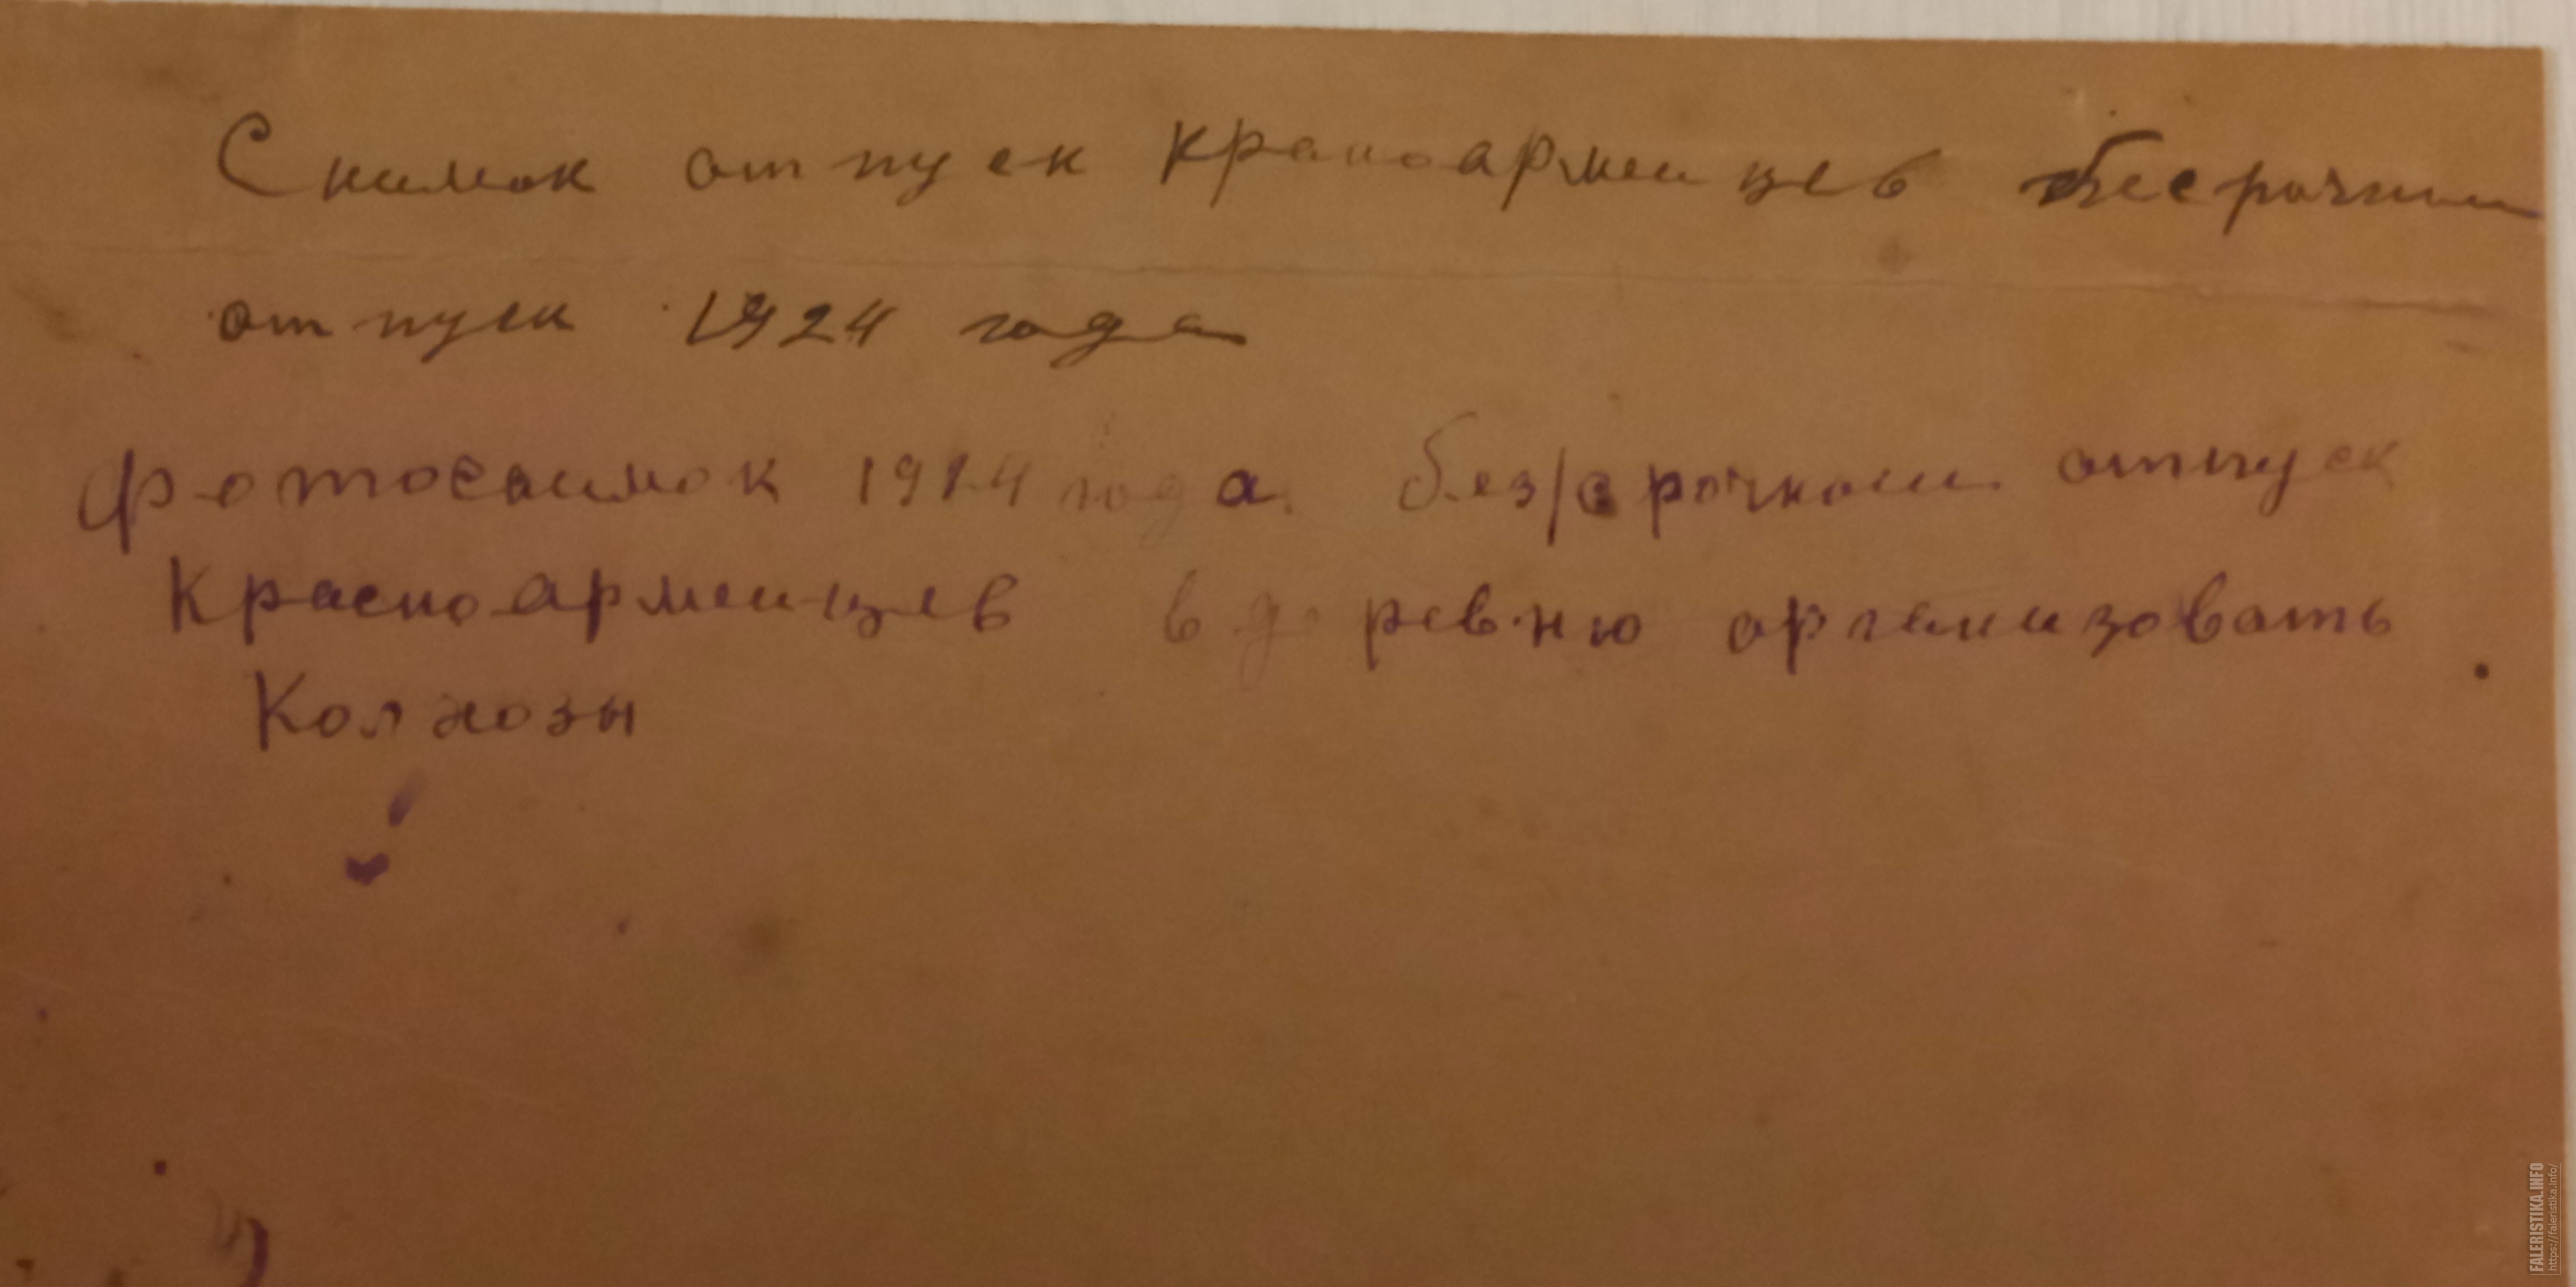 Снимок отпуск краноармейцев бесрочный
отпуск 1924 года
Фотоснимок 1924 года. без/срочный отпуск
Красноармейцев в деревню организовать
Колхозы
FALERISTIKA.INFO
https://faleristika.info/